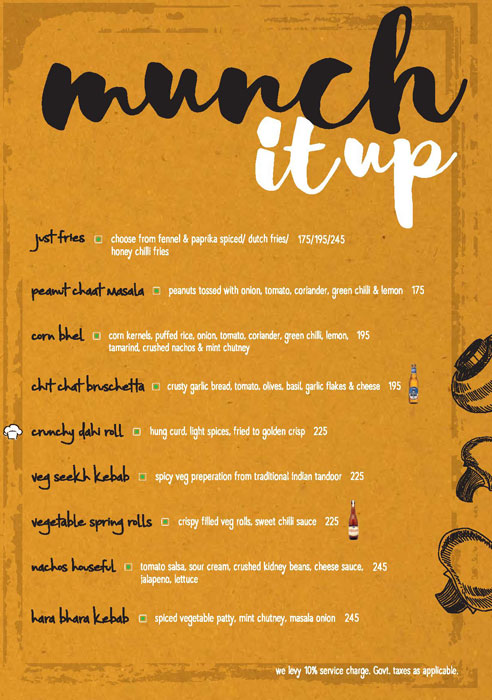 munch
it up
just fries choose from fennel & paprika spiced/ dutch fries/ 175/195/245
honey chilli fries
peanut chaat masala peanuts tossed with onion, tomato, coriander, green chilli & lemon 175
corn bhel corn kernels, puffed rice, onion, tomato, coriander, green chilli, lemon, 195
tamarind, crushed nachos & mint chutney
chit chat bruschetta crusty garlic bread, tomato, olives, basil, garlic flakes & cheese 195
crunchy dahi roll hung curd, light spices, fried to golden crisp 225
veg seekh kebab spicy veg preperation from traditional indian tandoor 225
vegetable spring rolls crispy filled veg rolls, sweet chilli sauce 225
nachos houseful tomato salsa, sour cream, crushed kidney beans, cheese sauce, 245
jalapeno, lettuce
hara bhara kebab spiced vegetable patty, mint chutney, masala onion 245
we levy 10% service charge. Govt. taxes as applicable.